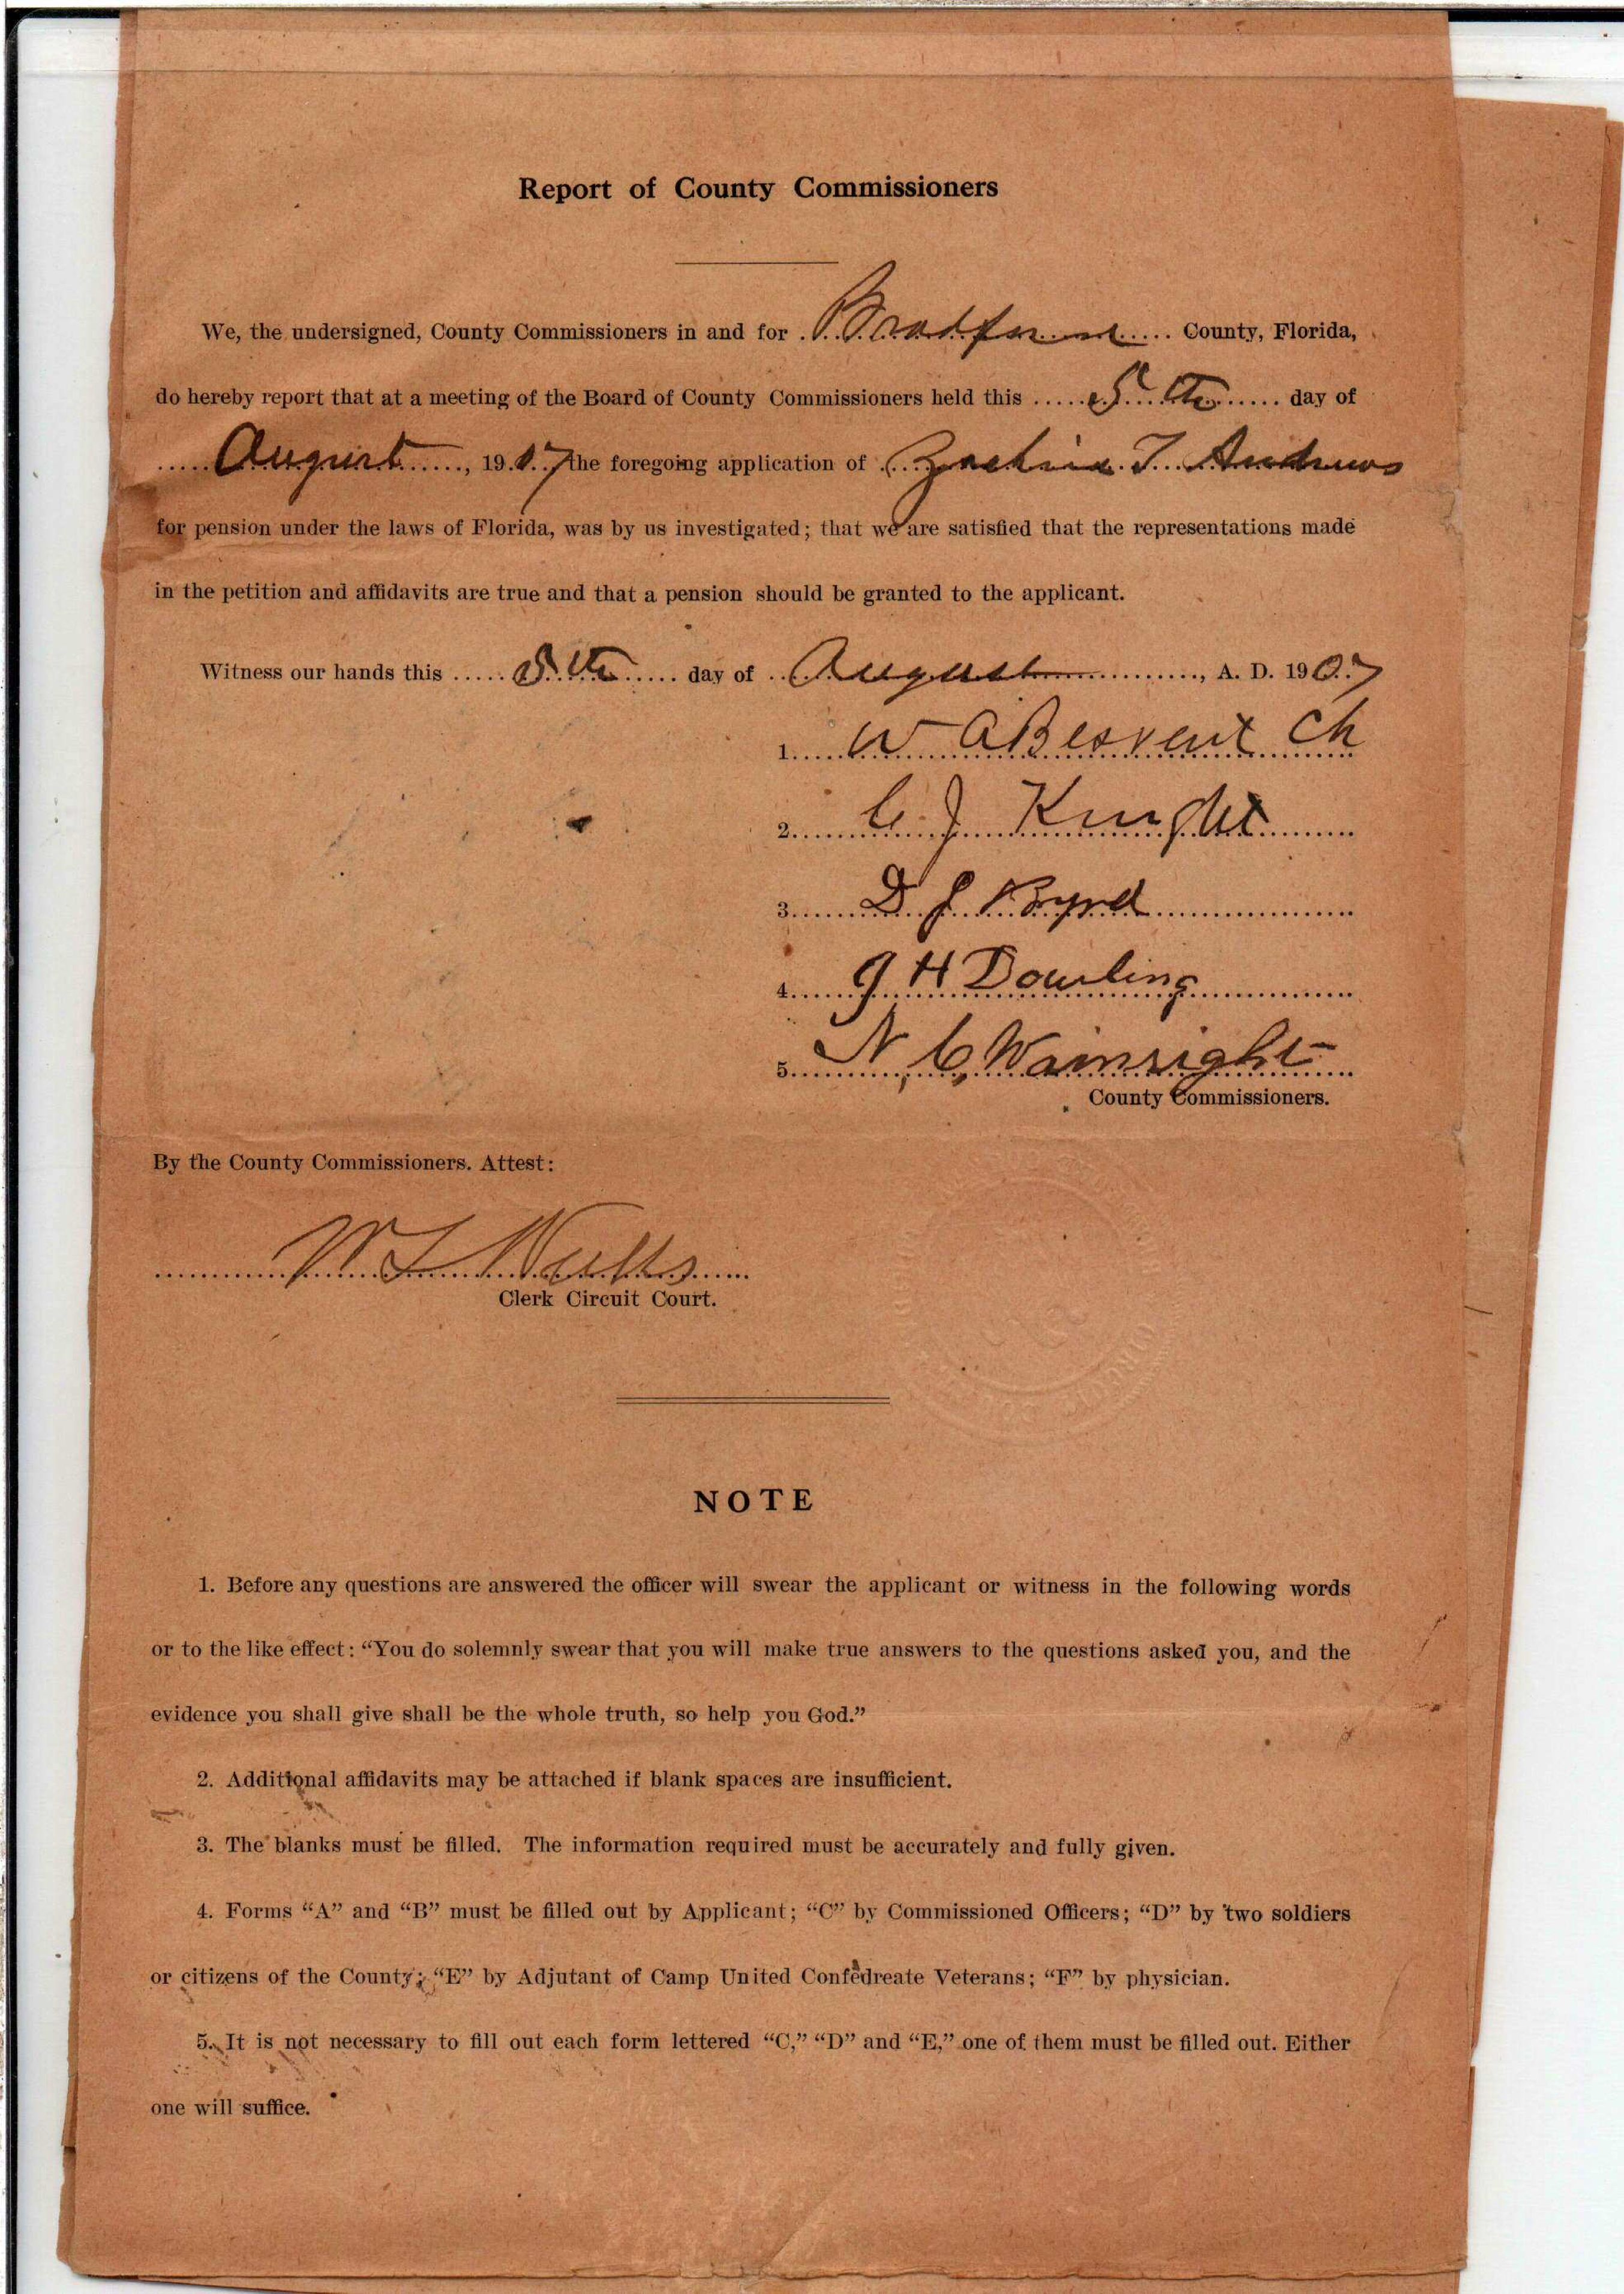 Report of County Commissioners
We, the undersigned, County Commissioners in and for Bradford County, Florida,
do hereby report that at a meeting of the Board of County Commissioners held this 5th day of
August, 1907 the foregoing application of T. Andrews
for pension under the laws of Florida, was by us investigated; that we are satisfied that the representations made
in the petition and affidavits are true and that a pension should be granted to the applicant.
Witness our hands this 5th day of August, A. D. 1907
1. W A Besvent Ch
2. C. J Knight
3. D S Byrd
4. J H Dowling
5. N. C. Wainright
County Commissioners.
By the County Commissioners. Attest:
Clerk Circuit Court.
NOTE
1. Before any questions are answered the officer will swear the applicant or witness in the following words
or to the like effect: “You do solemnly swear that you will make true answers to the questions asked you, and the
evidence you shall give shall be the whole truth, so help you God.”
2. Additional affidavits may be attached if blank spaces are insufficient.
3. The blanks must be filled. The information required must be accurately and fully given.
4. Forms “A” and “B” must be filled out by Applicant; “C” by Commissioned Officers; “D” by two soldiers
or citizens of the County; “E” by Adjutant of Camp United Confedreate Veterans; “F” by physician.
5. It is not necessary to fill out each form lettered “C,” “D” and “E,” one of them must be filled out. Either
one will suffice.